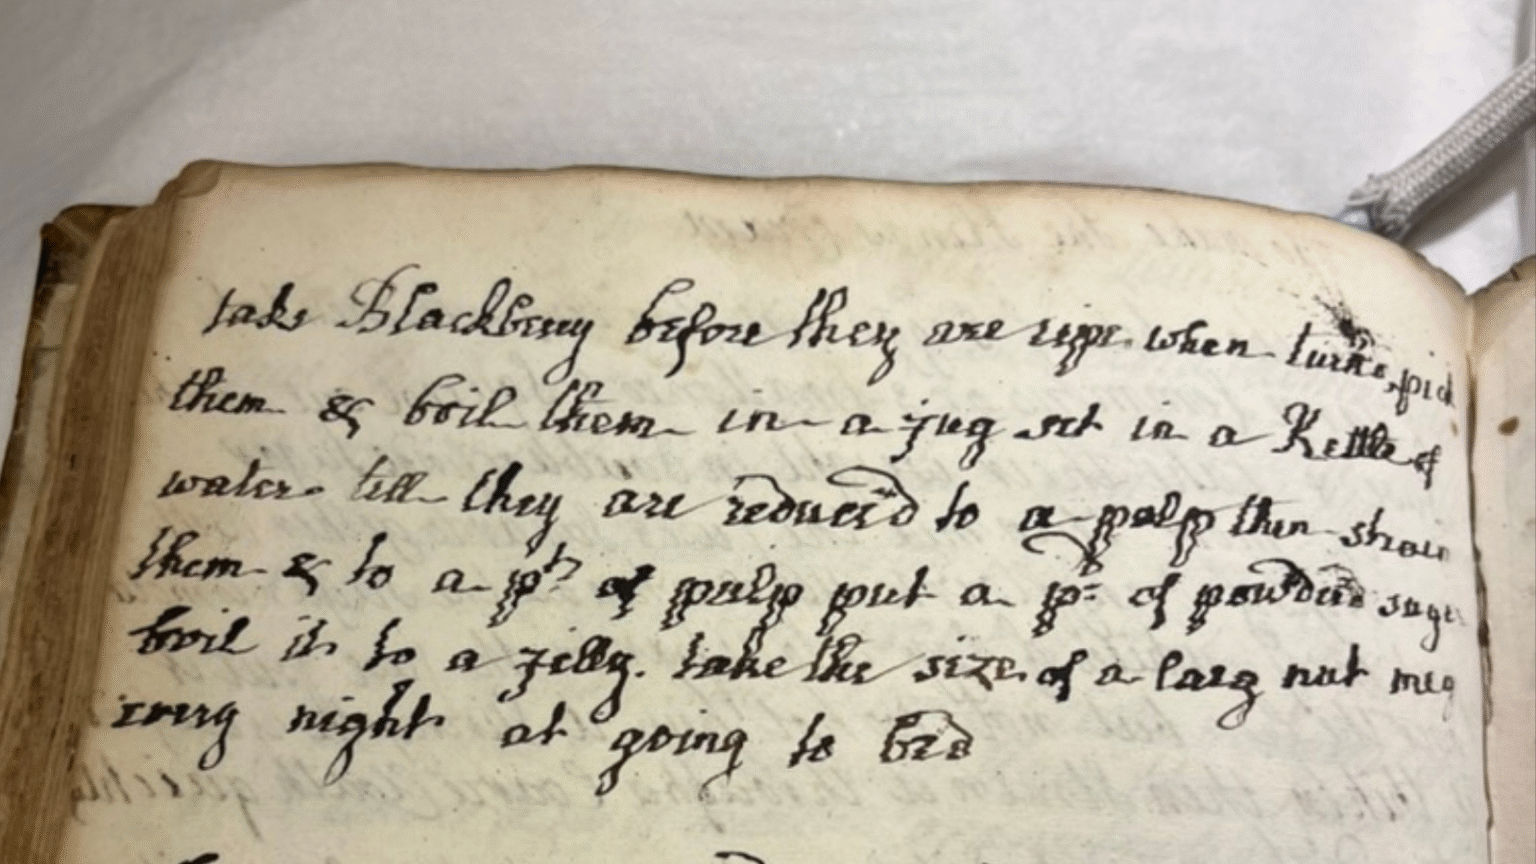 take Blackberry before they are ripe when turn'd, pick
them & boil them in a jug set in a Kettle of
water till they are reduced to a pulp then strain
them & to a pt of pulp put a p: of powder'd sugr
boil it to a jelly. take the size of a larg nut meg
every night at going to bed